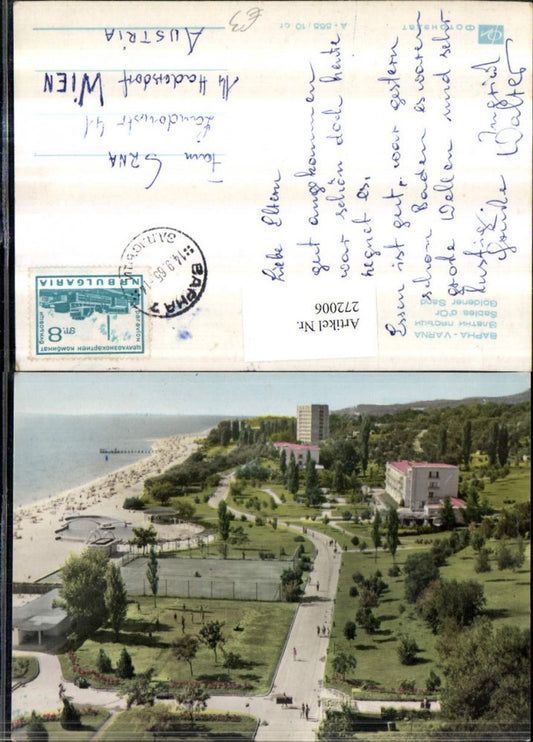 ФОТОИЗДАТ
A-565/10 ст
Liebe Eltern
gut angekommen
war schön doch heute
regnet es.
Essen ist gut, war gestern
schon Baden es waren
große Wellen und sehr
lustig.
Ingrid
Walter
Fam SRNA
14 Hadersdorf WIEN
AUSTRIA
ВАРНА
14.9.65
N.R. BULGARIA
8 ст.
Artikel Nr.
272006
ВАРНА - VARNA
Златни пясъци
Sables d'Or
Goldener Sand